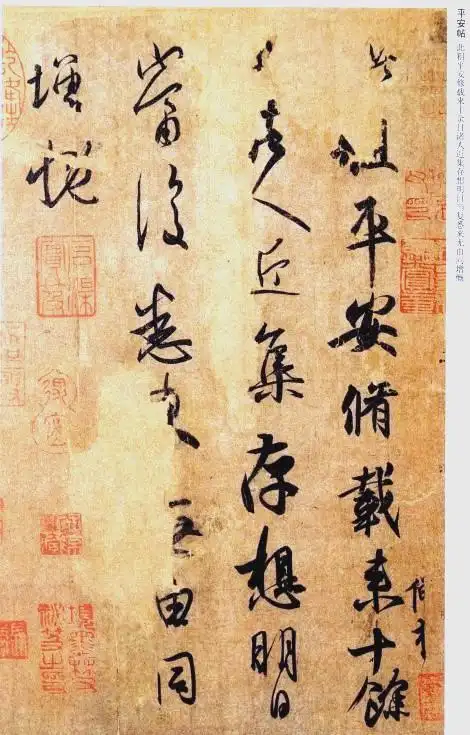 平安帖 此粗平安修载来十余日诸人近集存想明日当复悉来无由同增慨
此粗平安脩載来十餘
日諸人近集存想明日
當復悉来無由同
增慨